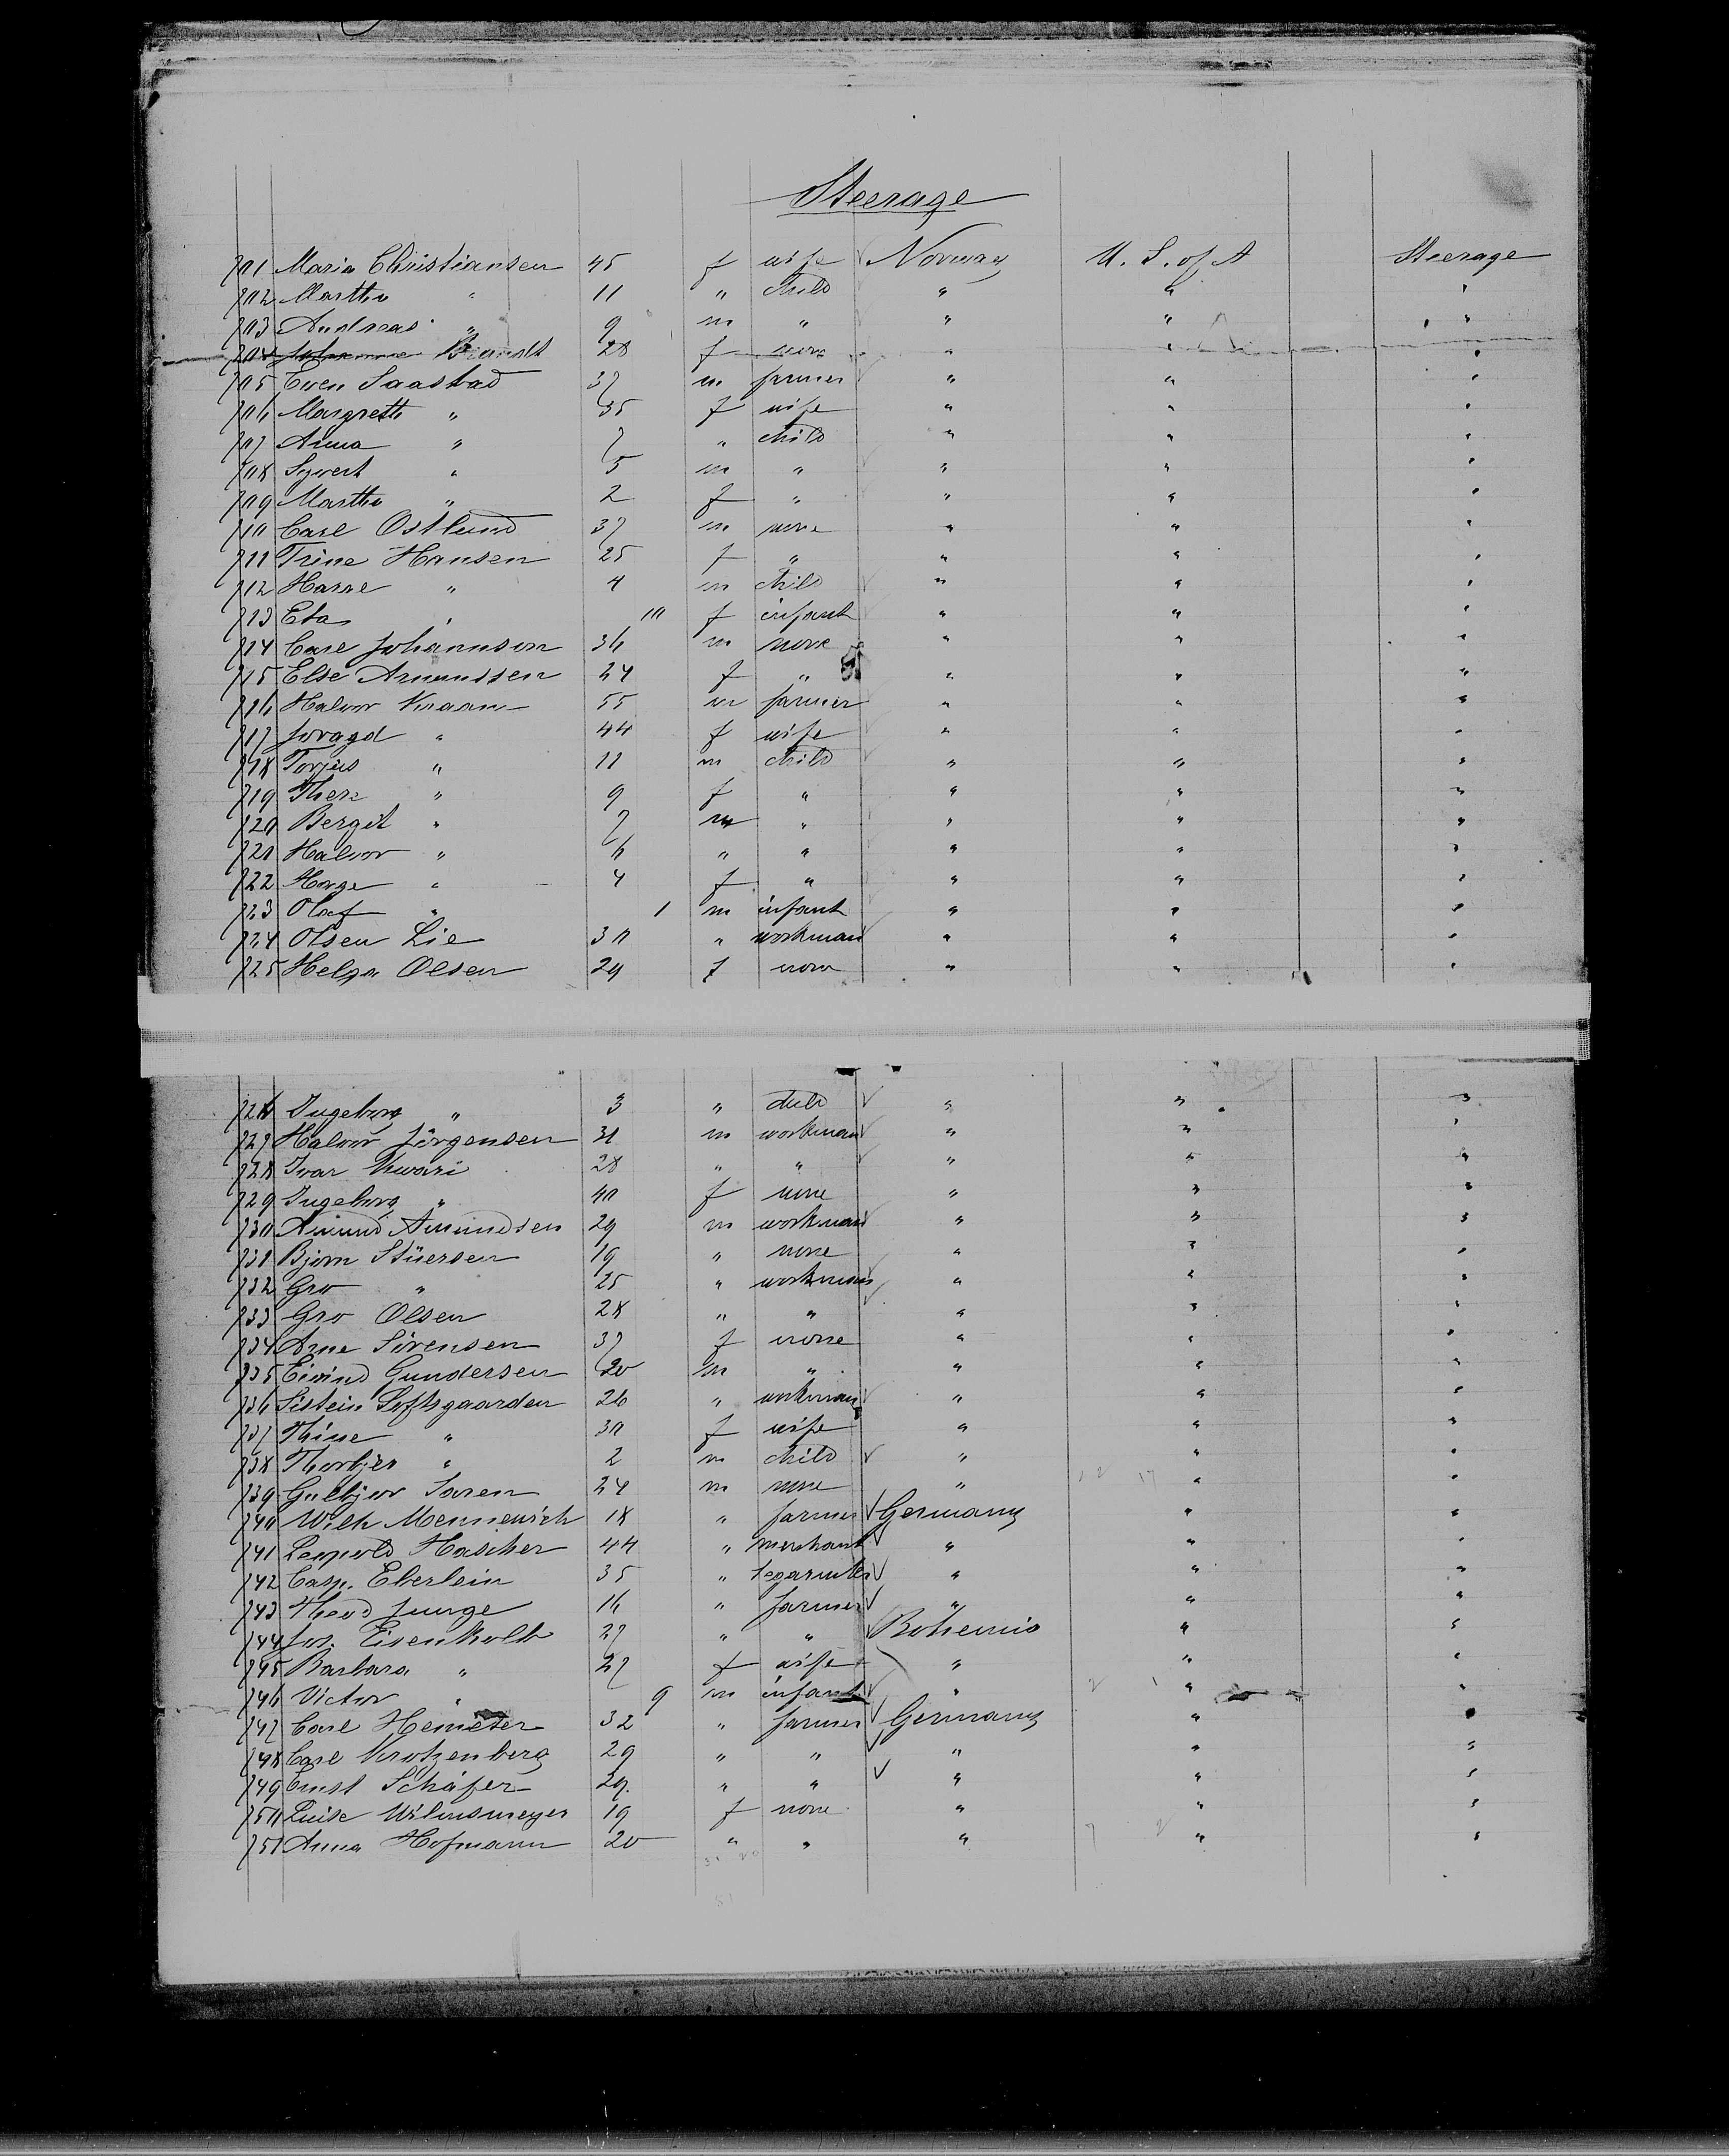 Steerage
701 Maria Christiansen 45 f wife Norway U. S. of A Steerage
702 Martha " 11 " child " " "
703 Andreas " 9 m " " " "
704 Johanne Brandt 28 f none " " "
705 Even Saastad 37 m farmer " " "
706 Margreth " 35 f wife " " "
707 Anna " 7 " child " " "
708 Sywert " 5 m " " " "
709 Martha " 2 f " " " "
710 Carl Ostlund 37 m none " " "
711 Trine Hansen 25 f " " " "
712 " 4 m child " " "
713 Eta " 10 f infant " " "
714 Carl Johannson 36 m none " " "
715 Else Amundsen 24 f " " " "
716 Halvor 55 m farmer " " "
717 Joragd " 44 f wife " " "
718 Torjus " 11 m child " " "
719 " 9 f " " " "
720 Bergit " 7 m " " " "
721 Halvor " 6 " " " " "
722 Horge " 4 f " " " "
723 Olaf " 1 m infant " " "
724 Olsen Lie 30 " workman " " "
725 Helga Olsen 29 f none " " "
726 Ingeborg " 3 " child " " "
727 Halvor Jörgensen 31 m workman " " "
728 Ivar Kwari 28 " " " " "
729 Ingeborg " 40 f none " " "
730 Amund Amundsen 29 m workman " " "
731 Bjorn Stüersen 19 " none " " "
732 Gro " 25 " workman " " "
733 Gro Olsen 28 " " " " "
734 Arne Sörensen 37 f none " " "
735 Eivind Gundersen 20 m " " " "
736 Sistein Loftsgaarden 26 " workman " " "
737 Thine " 30 f wife " " "
738 Thorbjer " 2 m child " " "
739 Gulbjor Saren 24 m none " " "
740 Wilh Mennewisch 18 " farmer Germany " "
741 Leopold Hascher 44 " merchant " " "
742 Casp. Eberlein 35 " " " "
743 Theod Junge 16 " farmer " " "
744 Jos. Eisenkolb 27 " " Bohemia " "
745 Barbara " 27 f wife " " "
746 Victor " 9 m infant " " "
747 Carl Hemeter 32 " farmer Germany " "
748 Carl Krotzenberg 29 " " " " "
749 Ernst Schäfer 29. " " " " "
750 Luise Wilmsmeyer 19 f none " " "
751 Anna Hofmann 20 " " " " "